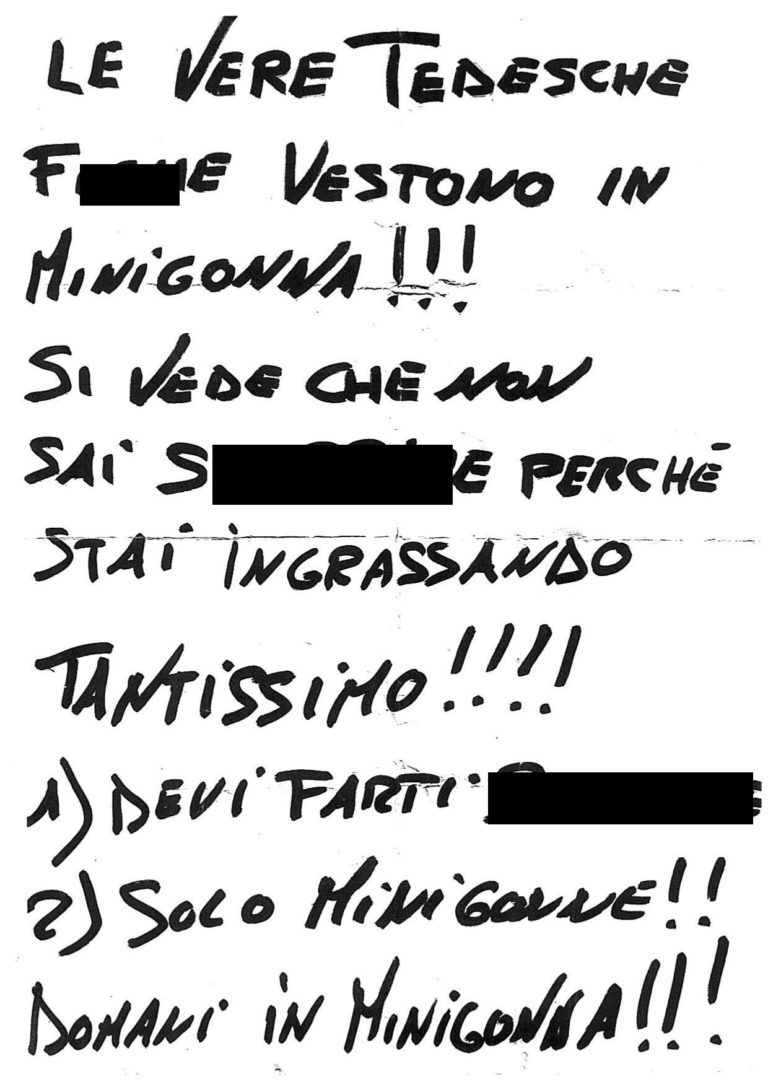 LE VERE TEDESCHE
VESTONO IN
MINIGONNA!!!
SI VEDE CHE NON
SAI PERCHÉ
STAI INGRASSANDO
TANTISSIMO!!!!
1) DEVI FARTI
2) SOLO MINIGONNE!!
DOMANI IN MINIGONNA!!!